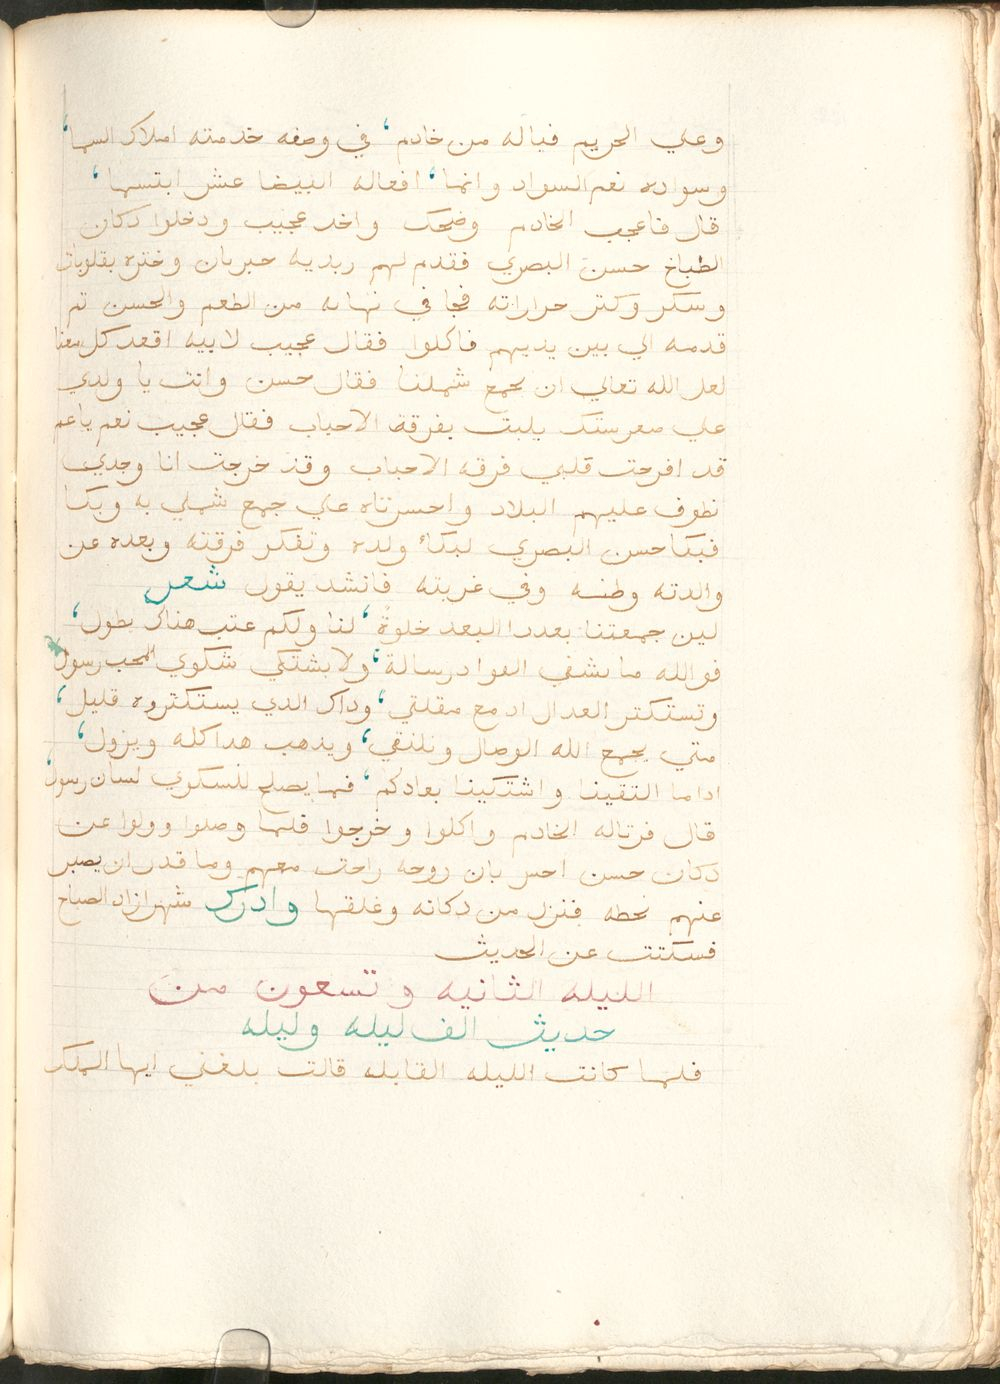 وعلي الحريم فياله من خادم ‘ في وصفه خدمته املاك السما ‘
وسواده نعم السواد وانما ‘ افعاله البيضا عش ابتسها ‘
قال فاعجب الخادم وضحك واخد عجيب ودخلوا دكان
الطباخ حسن البصري فقدم لهم ربديه حبرمان وختره بقلوبات
وسكر وكتر حراراته فجا في نهايه من الطعم والحسن تم
قدمه الي بين يديهم فاكلوا فقال عجيب لابيه اقعد كل معنا
لعل الله تعالي ان يجمع شملنا فقال حسن وانت يا ولدي
علي صغر سنك بليت بفرقة الاحباب فقال عجيب نعم ياعم
قد افرحت قلبي فرقه الاحباب وقد خرجت انا وجدي
نطوف عليهم البلاد واحسرتاه علي جمع شملي به وبكا
فبكا حسن البصري لبكاء ولده وتفكر فرقته وبعده عن
والدته وطنه وفي غربته فانشد يقول شعر
لين جمعتنا بعددا البعد خلوة ‘ لنا ولكم عتب هناك يطول ‘
فوالله ما يشفي الفواد رسالة ‘ ولا يشتكي شكوي المحب رسول
وتستكتر العدال ادمع مقلتي ‘ وداك الدي يستكتروه قليل ‘
متي يجمع الله الوصال ونلتقي ‘ ويذهب هدا كله ويزول ‘
اداما التقينا واشتكينا بعادكم ‘ فما يصلح للشكوي لسان رسول ‘
قال فرتاله الخادم واكلوا وخرجوا فلما وصلوا وولوا عن
دكان حسن احس بان روحه راحت معهم وما قدر ان يصبر
عنهم لحظه فنزل من دكانه وغلقها وادرك شهرازاد الصباح
فسكتت عن الحديث
الليله الثانيه وتسعون من
حديث الف ليله وليله
فلما كانت الليله القابله قالت بلغني ايها الملك